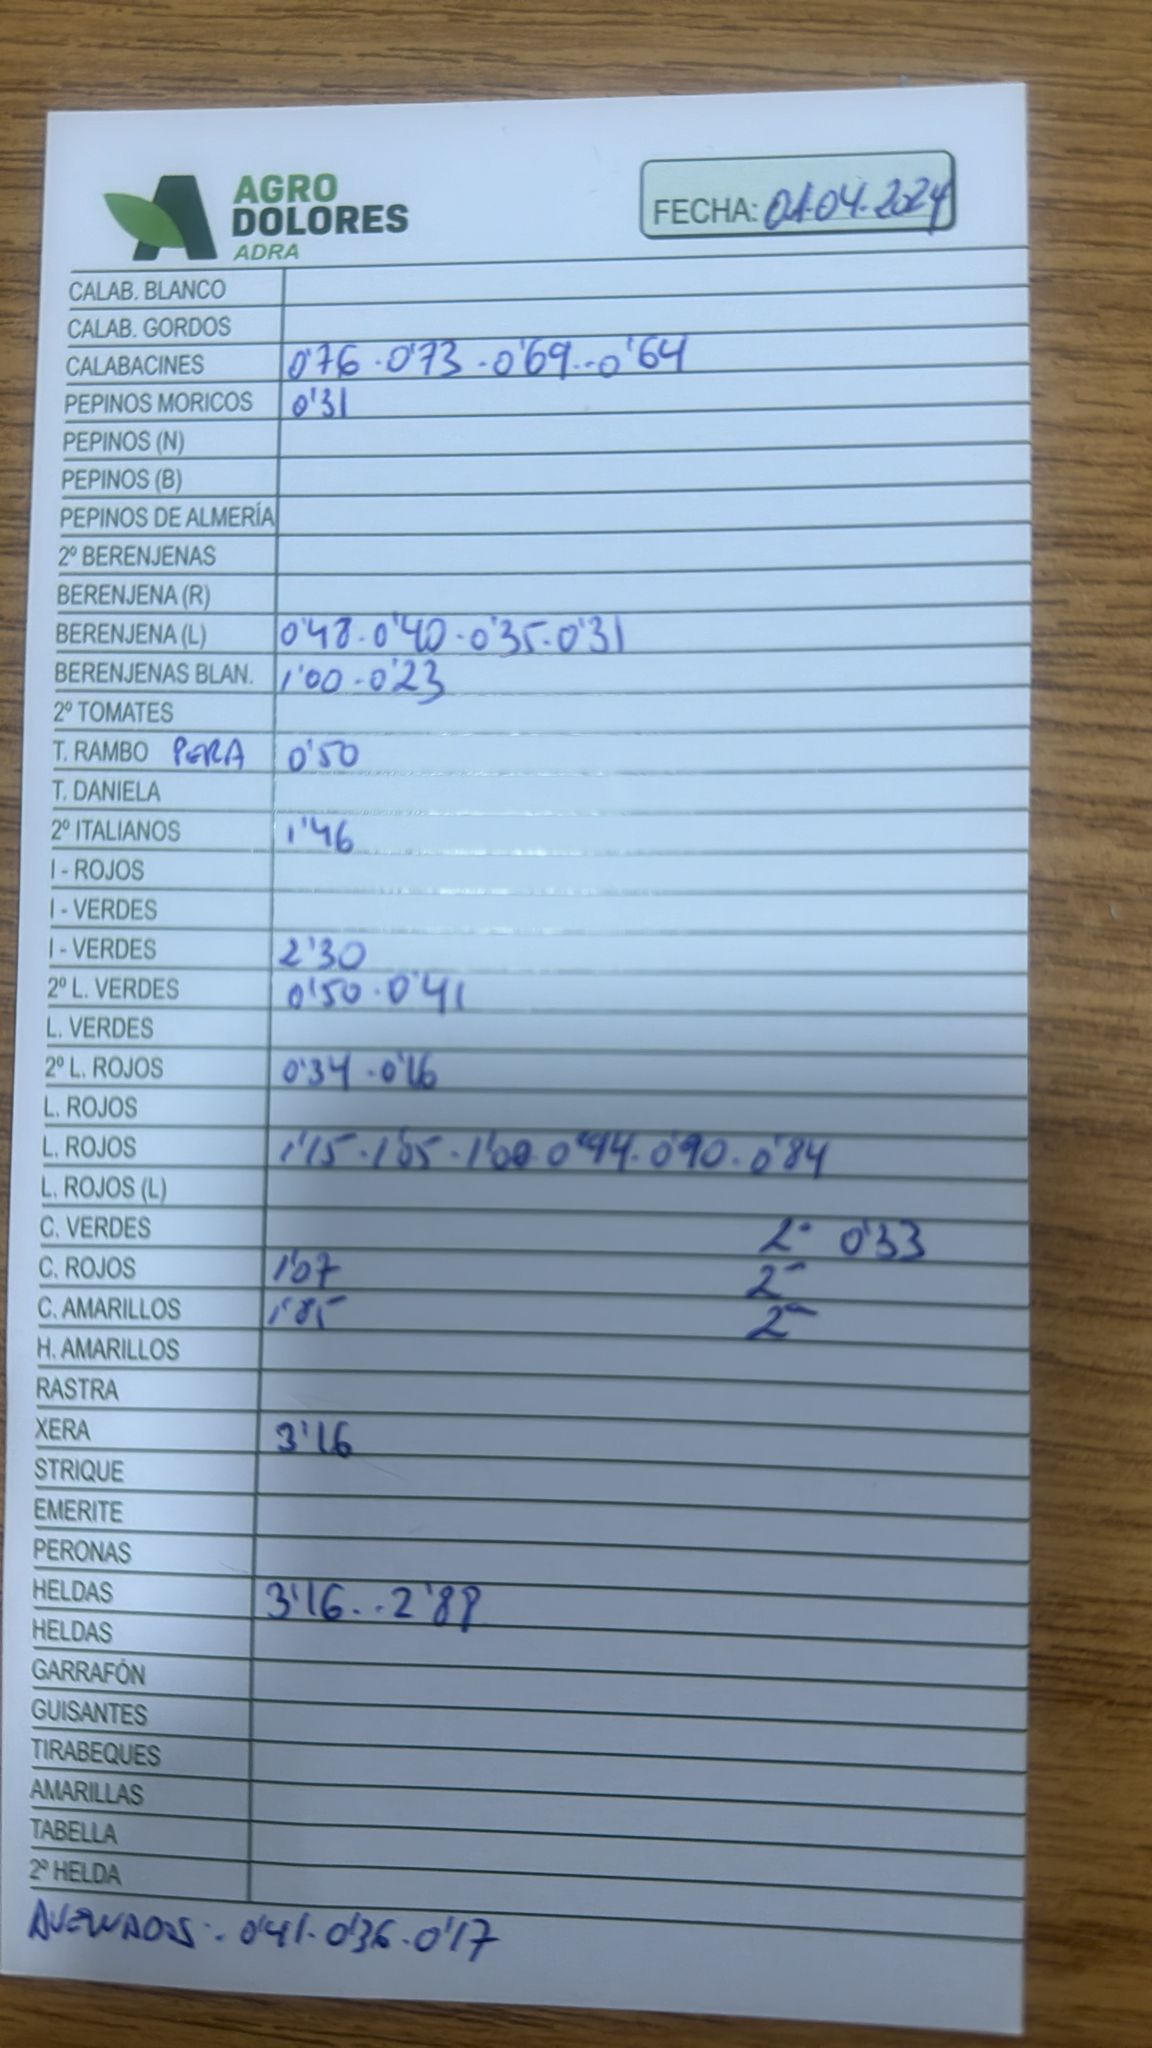 AGRO
DOLORES
ADRA
FECHA: 01.04.2024
CALAB. BLANCO
CALAB. GORDOS
CALABACINES 0'76 . 0'73 . 0'69 .. 0'64
PEPINOS MORICOS 0'31
PEPINOS (N)
PEPINOS (B)
PEPINOS DE ALMERÍA
2º BERENJENAS
BERENJENA (R)
BERENJENA (L) 0'48 . 0'40 . 0'35 . 0'31
BERENJENAS BLAN. 1'00 . 0'23
2º TOMATES
T. RAMBO PERA 0'50
T. DANIELA
2º ITALIANOS 1'46
I - ROJOS
I - VERDES
I - VERDES 2'30
2º L. VERDES 0'50 . 0'41
L. VERDES
2º L. ROJOS 0'34 . 0'16
L. ROJOS
L. ROJOS 1'15 . 1'05 . 1'00 . 0'94 . 0'90 . 0'84
L. ROJOS (L)
C. VERDES 2ª 0'33
C. ROJOS 1'07 2ª
C. AMARILLOS 1'85 2ª
H. AMARILLOS
RASTRA
XERA 3'16
STRIQUE
EMERITE
PERONAS
HELDAS 3'16 .. 2'88
HELDAS
GARRAFÓN
GUISANTES
TIRABEQUES
AMARILLAS
TABELLA
2º HELDA
0'41 . 0'36 . 0'17